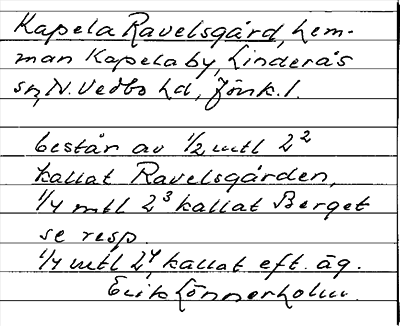 Kapela Ravelsgård, hem-
man Kapelaby, Linderås
sn, N. Vedbo hd, Jönk.l.
består av 1/2 mtl 2²
kallat Ravelsgården,
1/4 mtl 2³ kallat Berget
se resp.
1/4 mtl 2⁴, kallat eft. äg.
Erik Lönnerholm.